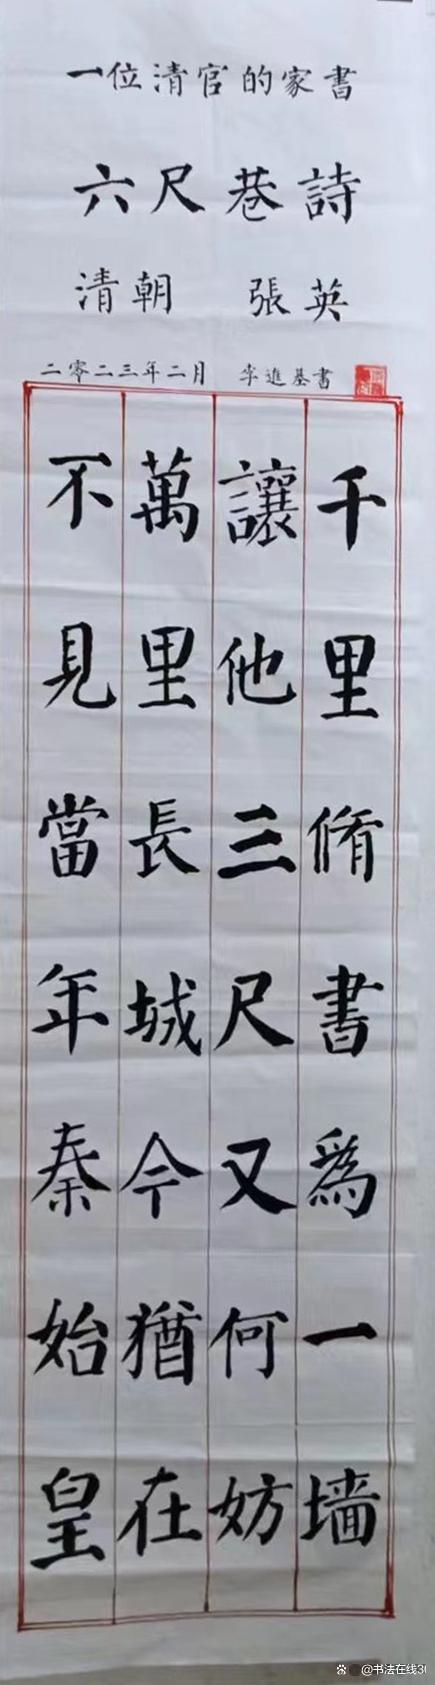 一位清官的家書
六尺巷詩
清朝 張英
二零二三年二月 李進基書
千里脩書爲一墻
讓他三尺又何妨
萬里長城今猶在
不見當年秦始皇
@书法在线